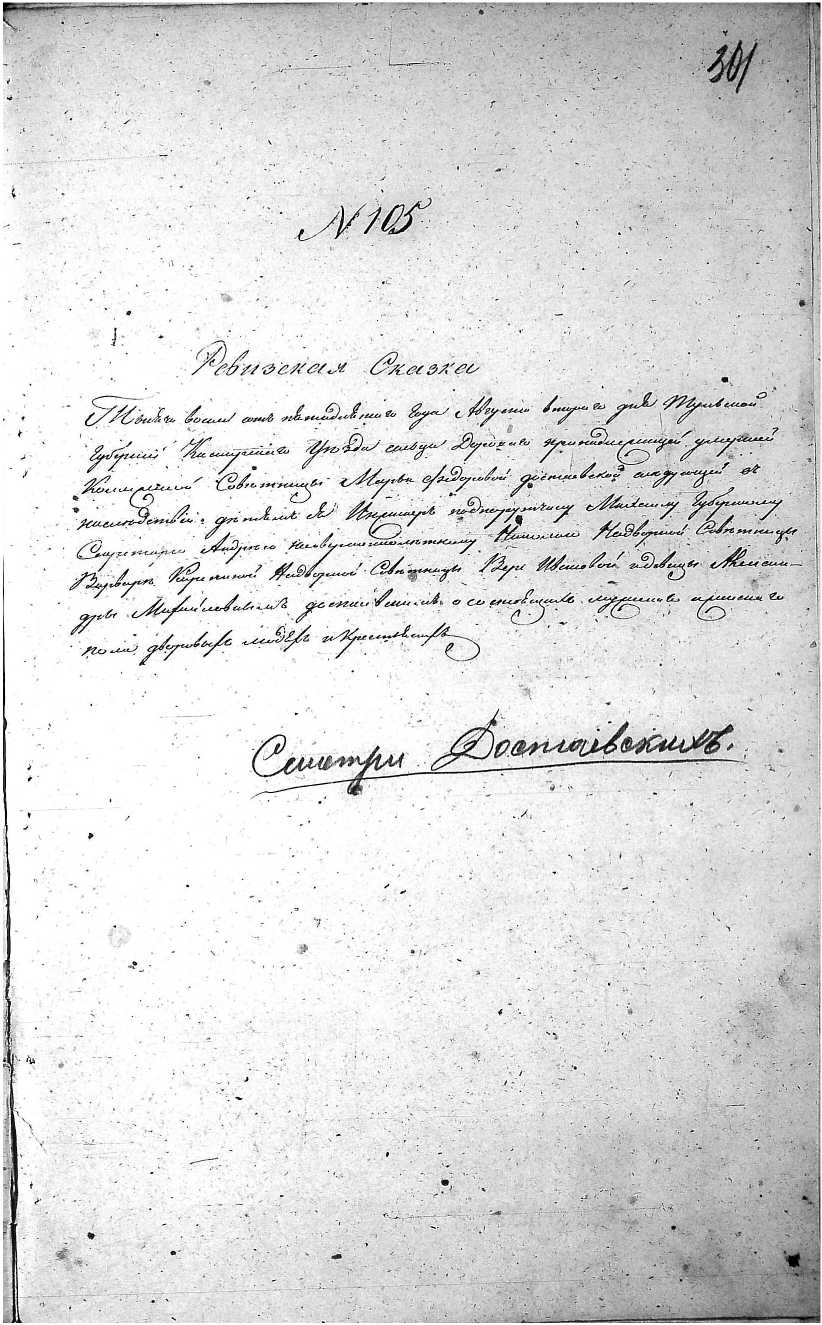 301
N 105
Ревизская Сказка
Тысяча восем сотъ пятидесятаго года Августа втораго дня Тульской
Губерніи Каширскаго Уезда сельца Дароваго принадлежащей умершей
Коллежской Советницы Марье Федоровой достаевской следующей въ
наследствіе детямъ Ея подпорутчику Михаилу Губернскому
Секретарю Андрею Николаю Надворной Советницы
Варваре Карепиной Надворной Советницы Вере Ивановой и девицы Алексан-
дры Михайловымъ достаевскимъ о состоящихъ мужеска и женскаго
пола дворовыхъ людехъ и Крестьянехъ
Смотри Достаевскихъ.